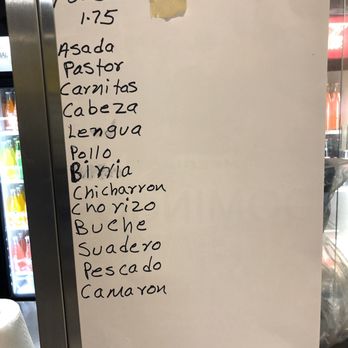 1.75
Asada
Pastor
Carnitas
Cabeza
Lengua
Pollo
Birria
Chicharron
Chorizo
Buche
Suadero
Pescado
Camaron